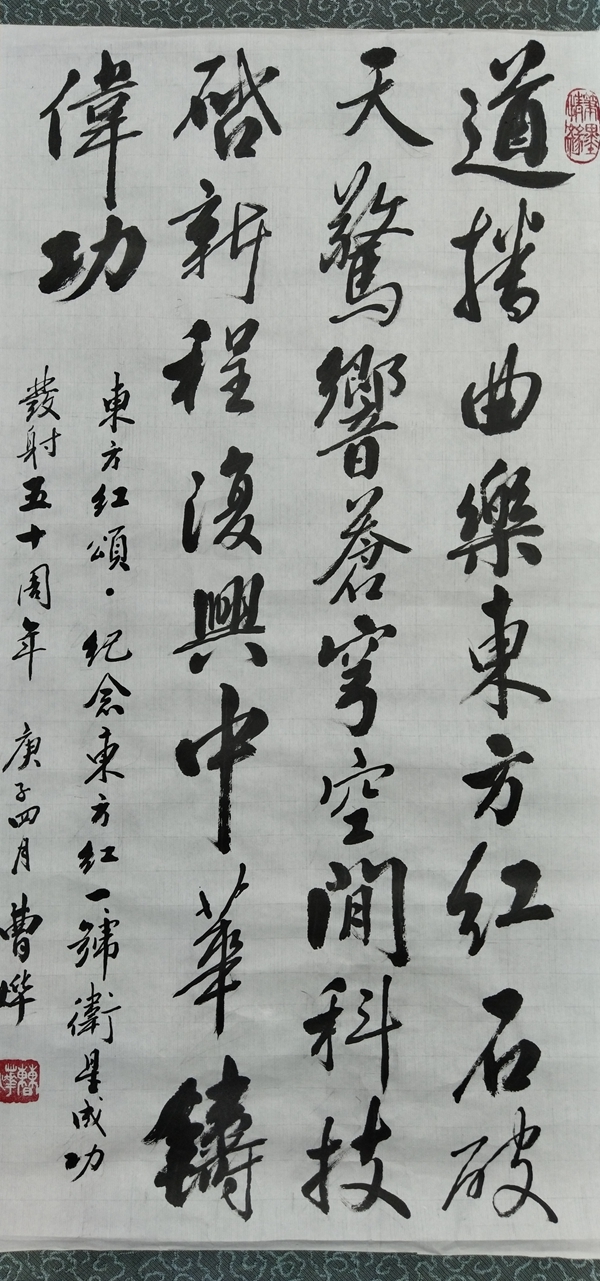 道播曲樂東方红石破
天驚響蒼穹空間科技
啟新程復興中華鑄
偉功
東方红頌·紀念東方红一號衛星成功
發射五十周年 庚子四月 曹燁